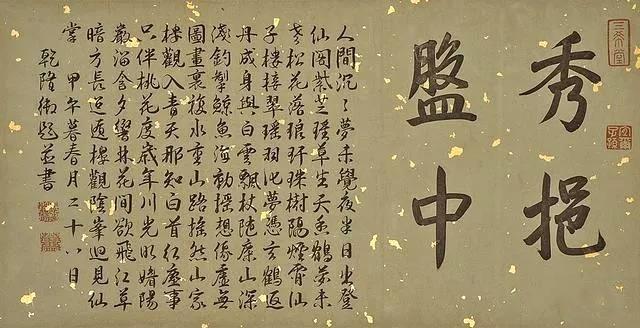 三希堂
秀挹
盤中
人間沉〻夢未覺夜半日出登
仙閣紫芝瑤草生天上鶴夢未
老松花落琅玕珠樹隔煙霄仙
子樓接翠瑤羽此夢憑玄鶴返
丹成身與白雲飄杖山深
淺釣掣鯨魚海初探想像虛無
圖畫裏複水重山路然山家
樓觀入青天那知白首紅塵事
只伴桃花度歲年川光明陽
巖溜含夕響林花間欲飛江草
暗方長迢遞樓觀陰峯迴見仙
掌 甲午暮春月二十八日
乾隆御題並書